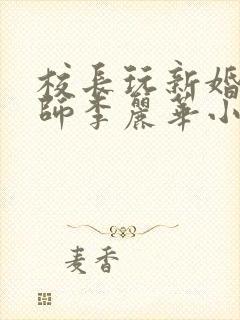 校長玩新婚
師李麗華小
麦香